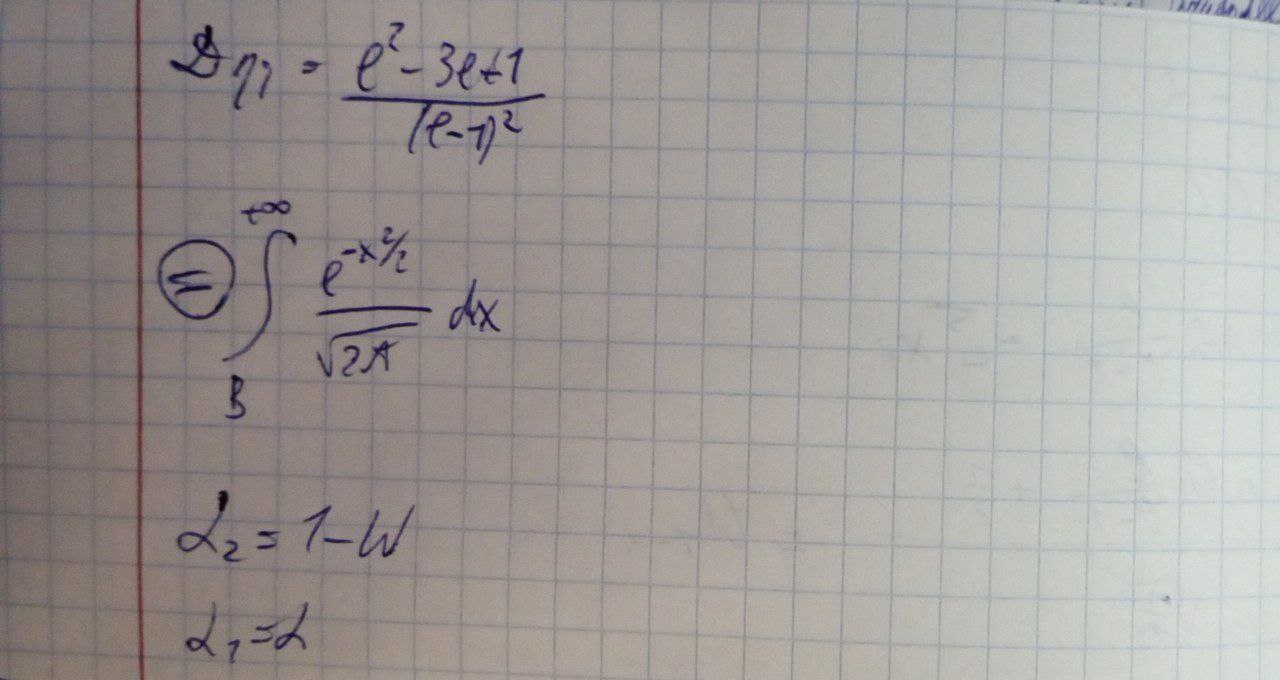 𝒟η₁ = (e² - 3e + 1) / (e - 1)²
(=) ∫_B^{+∞} e^{-x²/2} / √(2π) dx
α₂ = 1 - W
α₁ = α